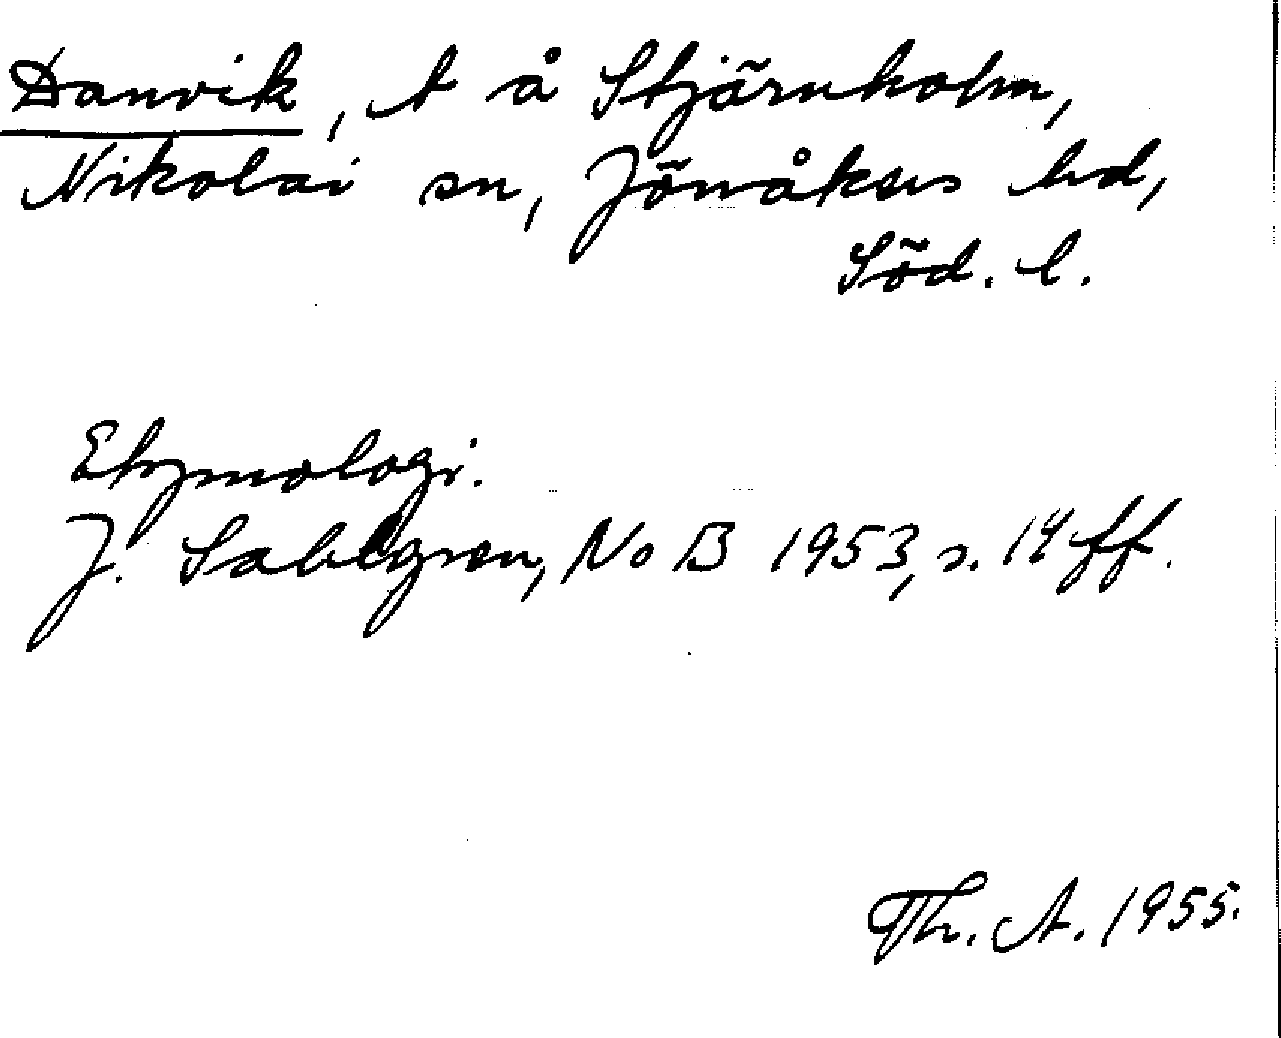 Danvik, t å Stjärnholm,
Nikolai sn, Jönåkers hd,
Söd. l.
Etymologi.
J. Sahlgren, No B 1953, s. 14 ff.
Th. A. 1955.